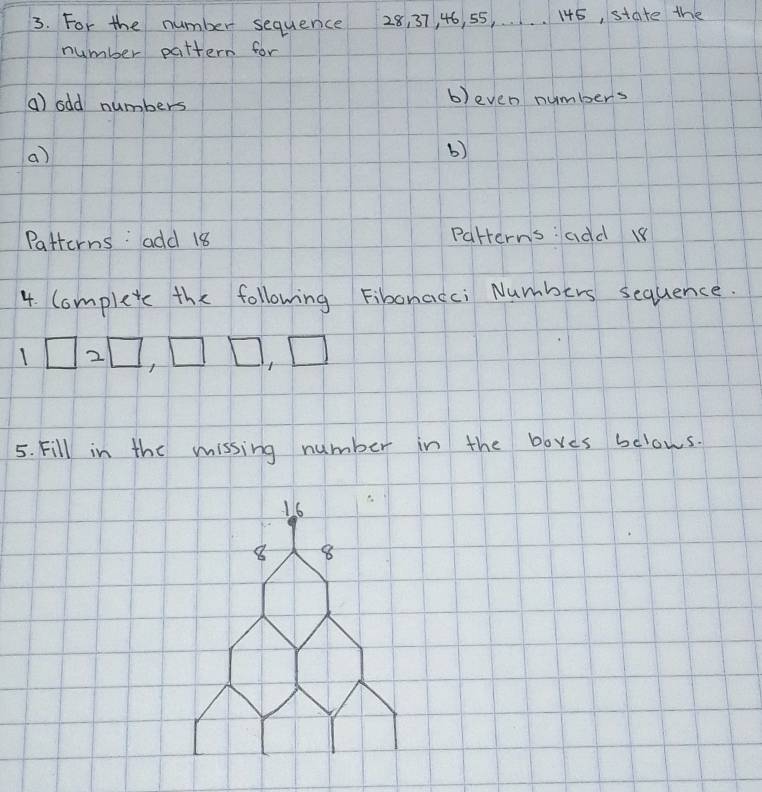 3. For the number sequence 28,37,46,55,..... 145, state the
number pattern for
a) odd numbers b) even numbers
a) b)
Patterns : add 18 Patterns : add 18
4. Complete the following Fibonacci Numbers sequence.
1 2 , ,
5. Fill in the missing number in the boxes belows.
16
8 8